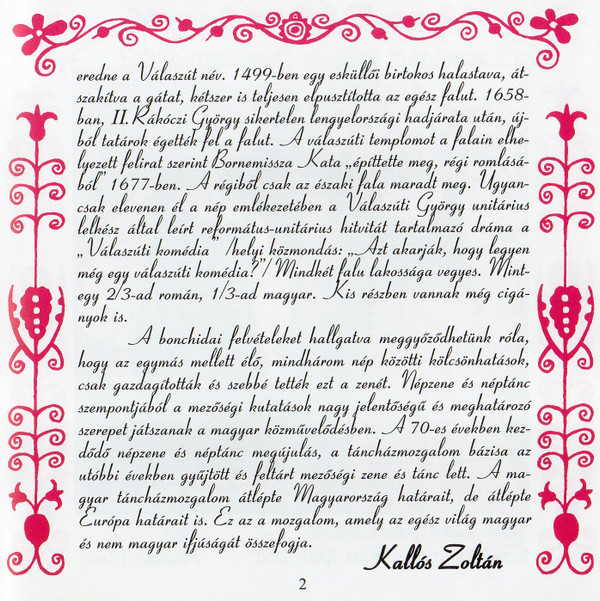 eredne a Válaszút név. 1499-ben egy esküllői birtokos halastava, át-
szakítva a gátat, kétszer is teljesen elpusztította az egész falut. 1658-
ban, II. Rákóczi György sikertelen lengyelországi hadjárata után, új-
ból tatárok égették fel a falut. A válaszúti templomot a falain elhe-
lyezett felirat szerint Bornemissza Kata „építtette meg, régi romlásá-
ból" 1677-ben. A régiből csak az északi fala maradt meg. Ugyan-
csak elevenen él a nép emlékezetében a Válaszúti György unitárius
lelkész által leírt református-unitárius hitvitát tartalmazó dráma a
„Válaszúti komédia" /helyi közmondás: „Azt akarják, hogy legyen
még egy válaszúti komédia?"/ Mindkét falu lakossága vegyes. Mint-
egy 2/3-ad román, 1/3-ad magyar. Kis részben vannak még cigá-
nyok is.
A bonchidai felvételeket hallgatva meggyőződhetünk róla,
hogy az egymás mellett élő, mindhárom nép közötti kölcsönhatások,
csak gazdagították és szebbé tették ezt a zenét. Népzene és néptánc
szempontjából a mezőségi kutatások nagy jelentőségű és meghatározó
szerepet játszanak a magyar közművelődésben. A 70-es években kez-
dődő népzene és néptánc megújulás, a táncházmozgalom bázisa az
utóbbi években gyűjtött és feltárt mezőségi zene és tánc lett. A ma-
gyar táncházmozgalom átlépte Magyarország határait, de átlépte
Európa határait is. Ez az a mozgalom, amely az egész világ magyar
és nem magyar ifjúságát összefogja.
Kallós Zoltán
2